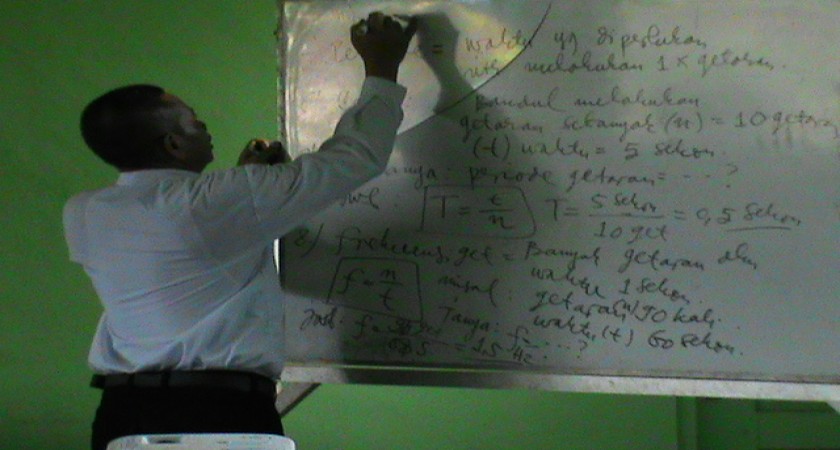 = waktu yg diperlukan
utk melakukan 1 x getaran.
Bandul melakukan
getaran sebanyak (n) = 10 getaran
(t) waktu = 5 sekon.
periode getaran = ... ?
Jwb. T = t/n T = 5 sekon / 10 get = 0,5 sekon
2) frekuensi get = Banyak getaran dlm
waktu 1 sekon.
f = n/t misal : getaran (n) 90 kali.
Tanya: f = ... ? waktu (t) 60 sekon.
Jwb. f = = 1,5 Hz.